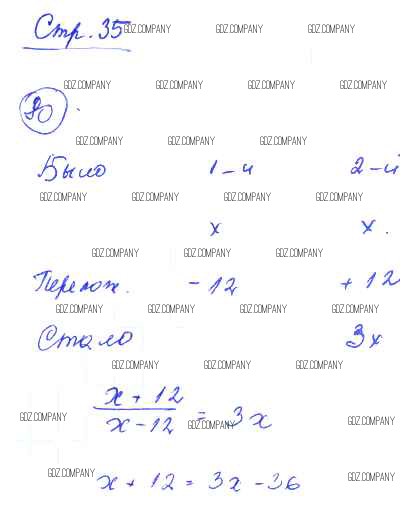 Стр. 35 GDZ.COMPANY GDZ.COMPANY GDZ.COMPANY
GDZ.COMPANY GDZ.COMPANY GDZ.COMPANY GDZ.COMPANY
80.
GDZ.COMPANY GDZ.COMPANY GDZ.COMPANY
Было 1-й 2-й
GDZ.COMPANY GDZ.COMPANY GDZ.COMPANY GDZ.COMPANY
x x.
GDZ.COMPANY GDZ.COMPANY GDZ.COMPANY
Перелож. -12 +12
GDZ.COMPANY GDZ.COMPANY GDZ.COMPANY GDZ.COMPANY
Стало 3x
GDZ.COMPANY GDZ.COMPANY GDZ.COMPANY
x + 12
GDZ.COMPANY x - 12 = GDZ.COMPANY 3x GDZ.COMPANY
GDZ.COMPANY x + 12 = 3x - 36 GDZ.COMPANY